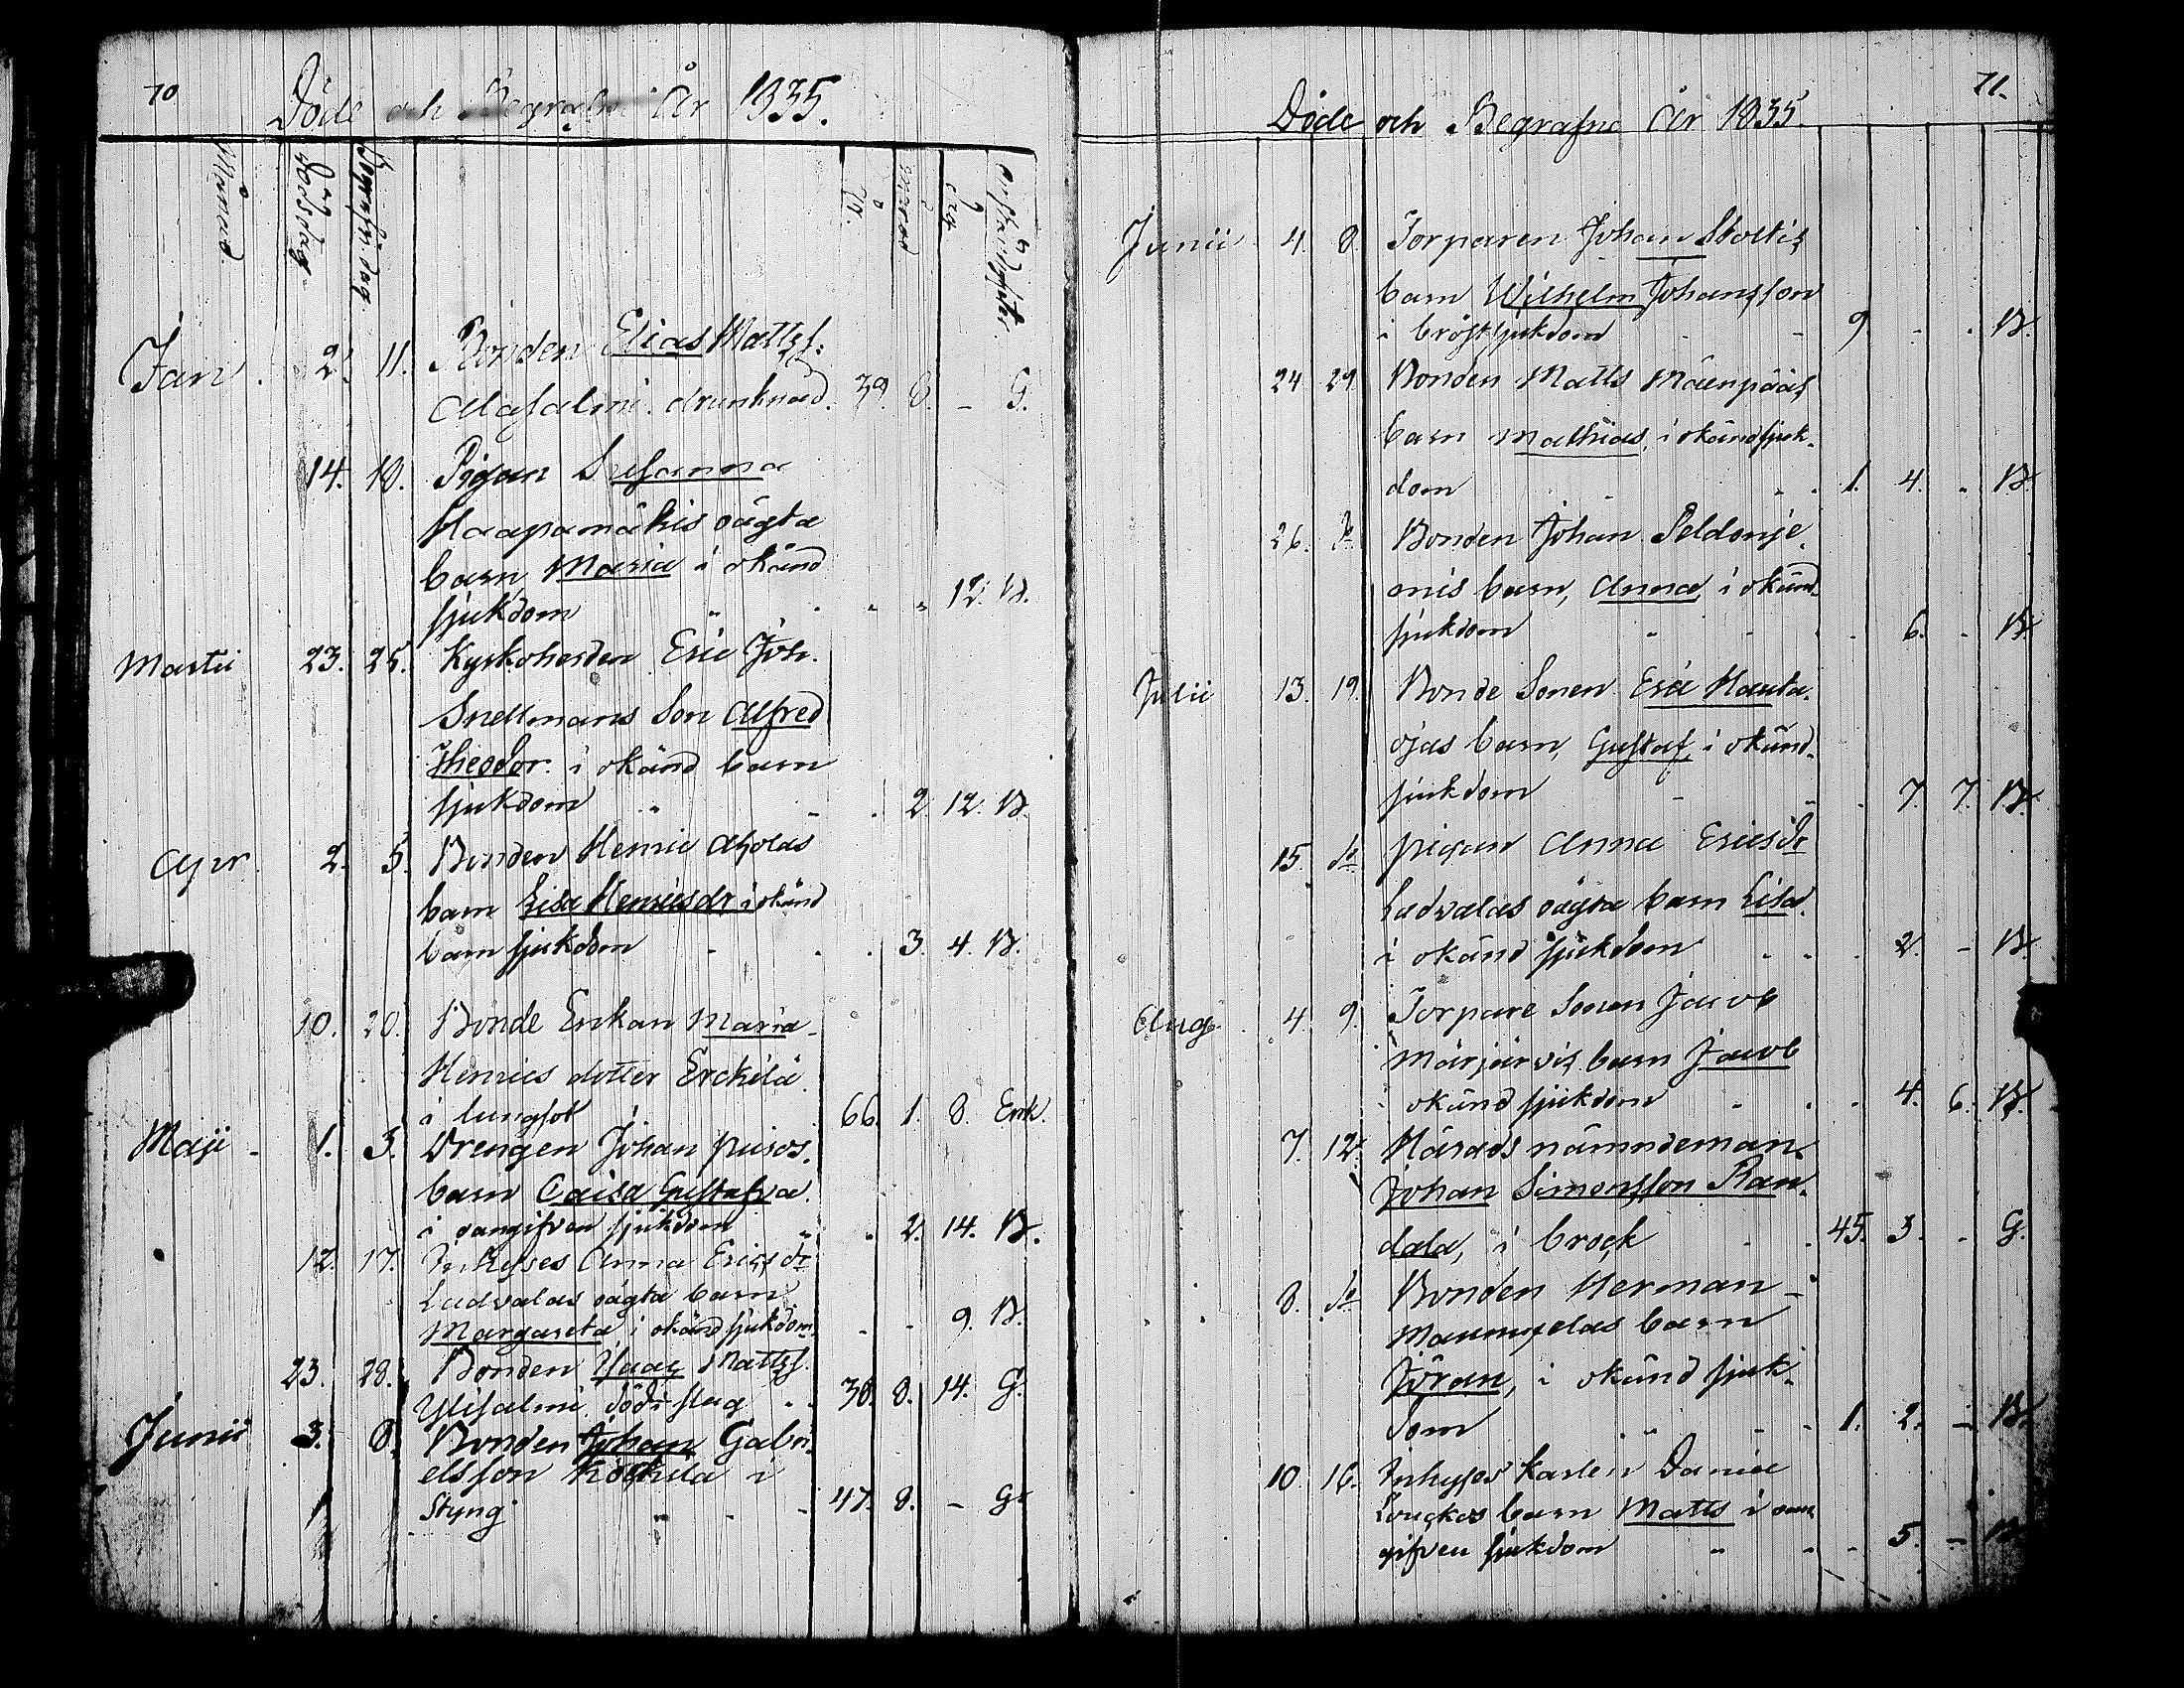 70
Döde och Begrafne År 1835.
Månad
Dödsdag
Begrafn. dag
År.
Månad
Dag
Jan. 2. 11. Bonden Elias Mattss.
Alasalmi. drunknad. 39. 8. - G.
14. 18. Pigan Susanna
Haapamäkis oägta
barn Maria i okänd
sjukdom " . " " 12. B.
Martii 23. 25. Kyrkoherden Eric Joh.
Snellmans Son Alfred
Theodor. i okänd barn
sjukdom " - . 2. 12. B.
Apr. 2. 5. Bonden Henric Aholas
barn Lisa Henricsdr i okänd
barnsjukdom - . . 3. 4. B.
10. 20. Bonde Enkan Maria
Henrics dotter Erckilä
i lungsot 66. 1. 8. Enk.
Maji - 1. 3. Drengen Johan puisos.
barn Caisa Gustafva
i oangifven sjukdom " . 2. 14. B.
12. 17. Inhyses Anna Ericsdr
Ladvalas oägta barn
Margareta i okänd sjukdom. - - 9. B.
23. 28. Bonden Isaac Mattss.
Ylisalmi. död i slag . . 38. 8. 14. G.
Junii 3. 8. Bonden Johan Gabri-
elsson Koskela i
Styng " - - 47. 8. - G.
71.
Döde och Begrafne År 1835.
Junii 4. 8. Torparen Johan Stoltis
barn Wilhelm Johansson
i bröstsjukdom - - 9. - . B.
24. 29. Bonden Matts Mäenpääs
barn Mathias, i okänd sjuk-
dom . - . . 1. 4. " B.
26. do Bonden Johan Peldonje-
mis barn, Anna, i okänd
sjukdom " - - . 6. - B.
Julii 13. 19. Bonde Sonen Eric Hauta-
ojas barn, Gustaf, i okänd
sjukdom - " . 7. 7. B.
15. do pigan Anna Ericsdr
Ladvalas oägta barn Lisa
i okänd sjukdom . . . 2. - B.
Aug. 4. 9. Torpare Sonen Jacob
Märjärvis barn Jacob
i okänd sjukdom - . . 4. 6. B.
7. 12. Härads nämndeman
Johan Simonsson Ran-
dala, i brock - . 45. 3. - G.
8. do Bonden Herman
Maunuxelas barn
Jöran, i okänd sjuk-
dom " - . 1. 2. - B.
10. 16. Inhyses karlen Daniel
barn Matts i oan-
gifven sjukdom " - - 5. - B.